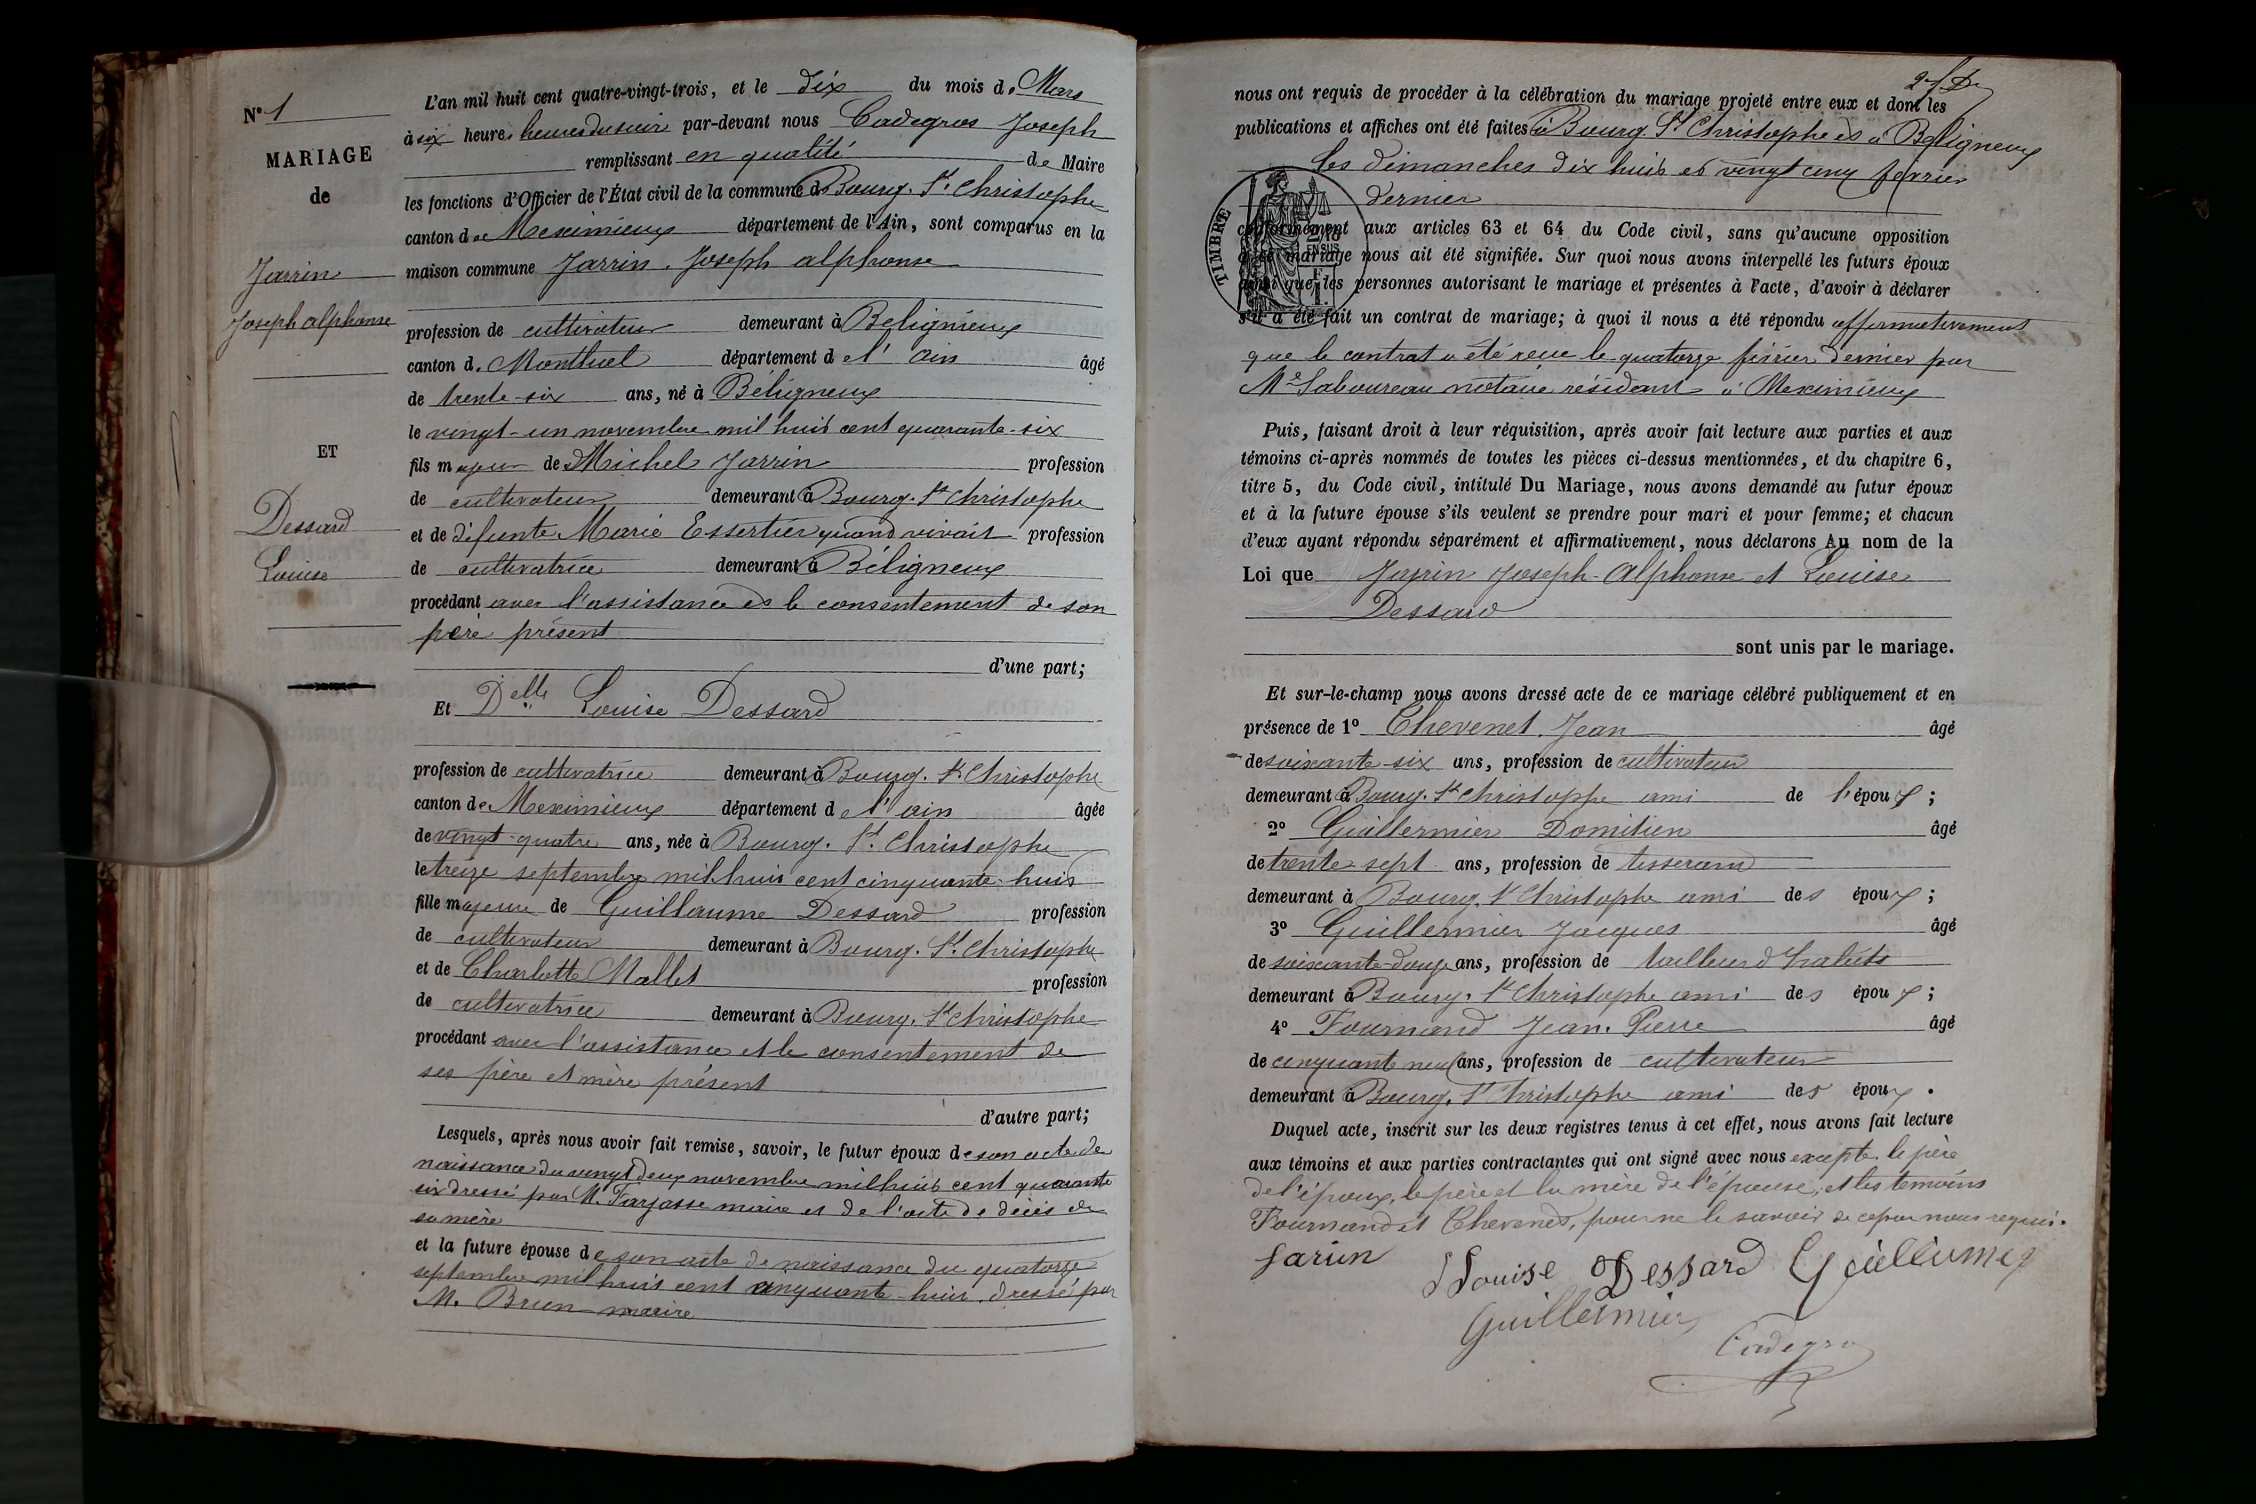 N° 1
MARIAGE
de
Jarrin
Joseph alphonse
ET
Dessard
Louise
L'an mil huit cent quatre-vingt-trois, et le dix du mois de Mars
à six heures heures du soir par-devant nous Cadegros Joseph
remplissant en qualité de Maire
les fonctions d'Officier de l'État civil de la commune de Bourg. St. Christophe
canton de Meximieux département de l'Ain, sont comparus en la
maison commune Jarrin. Joseph alphonse
profession de cultivateur demeurant à Béligneux
canton de Montluel département de l'ain âgé
de trente-six ans, né à Béligneux
le vingt-un novembre mil huit cent quarante-six
fils majeur de Michel Jarrin profession
de cultivateur demeurant à Bourg. St Christophe
et de défunte Marie Essertier quand vivait profession
de cultivatrice demeurant à Béligneux
procédant avec l'assistance et le consentement de son
père présent
d'une part;
Et Delle Louise Dessard
profession de cultivatrice demeurant à Bourg. St Christophe
canton de Meximieux département de l'ain âgée
de vingt-quatre ans, née à Bourg. St. Christophe
le treize septembre mil huit cent cinquante-huit
fille majeure de Guillaume Dessard profession
de cultivateur demeurant à Bourg. St. Christophe
et de Charlotte Mallet profession
de cultivatrice demeurant à Bourg. St Christophe
procédant avec l'assistance et le consentement de
ses père et mère présent
d'autre part;
Lesquels, après nous avoir fait remise, savoir, le futur époux de son acte de
naissance du vingt deux novembre mil huit cent quarante
six dressé par M. Farjasse maire et de l'acte de décès de
sa mère
et la future épouse de son acte de naissance du quatorze
septembre mil huit cent cinquante-huit dressé par
M. Brun maire
nous ont requis de procéder à la célébration du mariage projeté entre eux et dont les
publications et affiches ont été faites à Bourg. St Christophe et à Béligneux
les dimanches dix huit et vingt cinq février
dernier
TIMBRE
conformément aux articles 63 et 64 du Code civil, sans qu'aucune opposition
à ce mariage nous ait été signifiée. Sur quoi nous avons interpellé les futurs époux
ainsi que les personnes autorisant le mariage et présentes à l'acte, d'avoir à déclarer
s'il a été fait un contrat de mariage; à quoi il nous a été répondu affirmativement
que le contrat a été reçu le quatorze février dernier par
Me Laboureau notaire résidant à Meximieux
Puis, faisant droit à leur réquisition, après avoir fait lecture aux parties et aux
témoins ci-après nommés de toutes les pièces ci-dessus mentionnées, et du chapitre 6,
titre 5, du Code civil, intitulé Du Mariage, nous avons demandé au futur époux
et à la future épouse s'ils veulent se prendre pour mari et pour femme; et chacun
d'eux ayant répondu séparément et affirmativement, nous déclarons Au nom de la
Loi que Jarrin Joseph-Alphonse et Louise
Dessard
sont unis par le mariage.
Et sur-le-champ nous avons dressé acte de ce mariage célébré publiquement et en
présence de 1° Chevenet Jean âgé
de soixante-six ans, profession de cultivateur
demeurant à Bourg. St Christophe ami de l'époux;
2° Guillermier Domitien âgé
de trente sept ans, profession de tisserand
demeurant à Bourg. St Christophe ami des époux;
3° Guillermier Jacques âgé
de soixante-douze ans, profession de tailleur d'habits
demeurant à Bourg. St Christophe ami des époux;
4° Fournand Jean. Pierre âgé
de cinquante neuf ans, profession de cultivateur
demeurant à Bourg. St Christophe ami des époux.
Duquel acte, inscrit sur les deux registres tenus à cet effet, nous avons fait lecture
aux témoins et aux parties contractantes qui ont signé avec nous excepté le père
de l'époux, le père et la mère de l'épouse, et les témoins
Fournand et Chevenet, pour ne le savoir de ce par nous requis.
Jarrin Louise Dessard
Guillermier
Cadegros